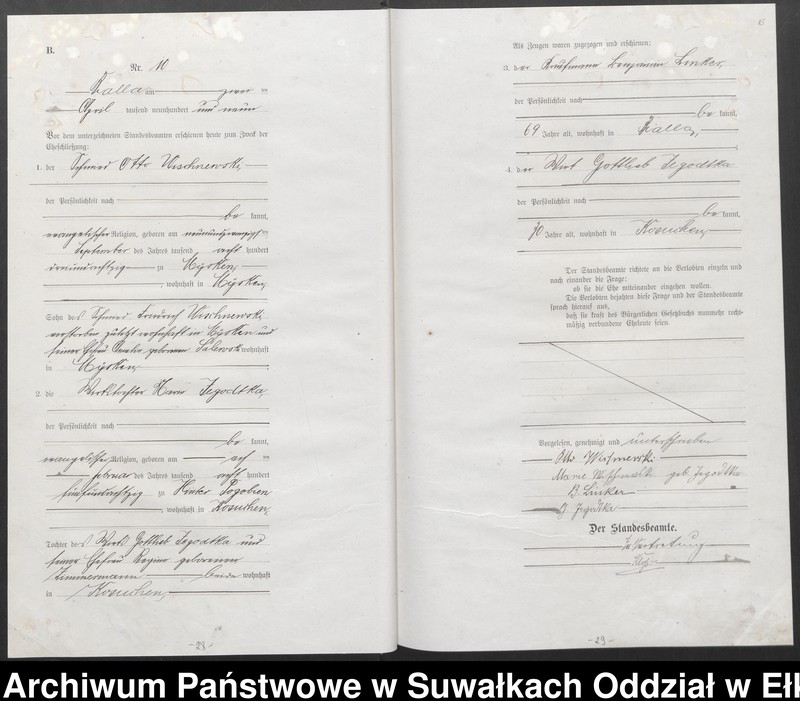 B.
Nr. 10
Kalla am zwei ten
April tausend neunhundert und neun
Vor dem unterzeichneten Standesbeamten erschienen heute zum Zweck der
Eheschließung:
1. der Schmied Otto Wischnewski,
der Persönlichkeit nach
be kannt,
evangelischer Religion, geboren am neunundzwanzigsten
September des Jahres tausend acht hundert
dreiundachtzig zu
, wohnhaft in
Sohn des Schmied Friedrich Wischnewski,
verstorben zuletzt wohnhaft in und
seiner Ehefrau geborenen wohnhaft
in
2. die Wirtstochter Marie Jegodtka,
der Persönlichkeit nach
be kannt,
evangelischer Religion, geboren am ach ten
Februar des Jahres tausend acht hundert
fünfundachtzig zu Hinter Pogobien
, wohnhaft in Kosuchen,
Tochter des Wirts Gottlieb Jegodtka und
seiner Ehefrau Regine geborenen
Zimmermann beide wohnhaft
in Kosuchen,
- 28 -
Als Zeugen waren zugezogen und erschienen:
3. der Kaufmann Benjamin Linker,
der Persönlichkeit nach
be kannt,
69 Jahre alt, wohnhaft in Kalla,
4. der Wirt Gottlieb Jegodtka
der Persönlichkeit nach
be kannt,
70 Jahre alt, wohnhaft in Kosuchen,
Der Standesbeamte richtete an die Verlobten einzeln und
nach einander die Frage:
ob sie die Ehe miteinander eingehen wollen.
Die Verlobten bejahten diese Frage und der Standesbeamte
sprach hierauf aus,
daß sie kraft des Bürgerlichen Gesetzbuchs nunmehr recht-
mäßig verbundene Eheleute seien.
Vorgelesen, genehmigt und unterschrieben
Otto Wischnewski
Marie Wischnewski geb Jegodtka
B. Linker
G Jegodtka
Der Standesbeamte.
In Vertretung
- 29 -
Archiwum Państwowe w Suwałkach Oddział w Ełk